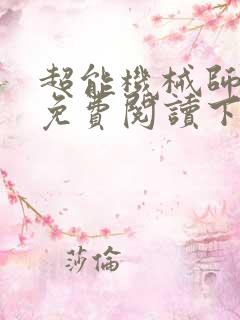 超能機械師
免費閱讀下
莎倫